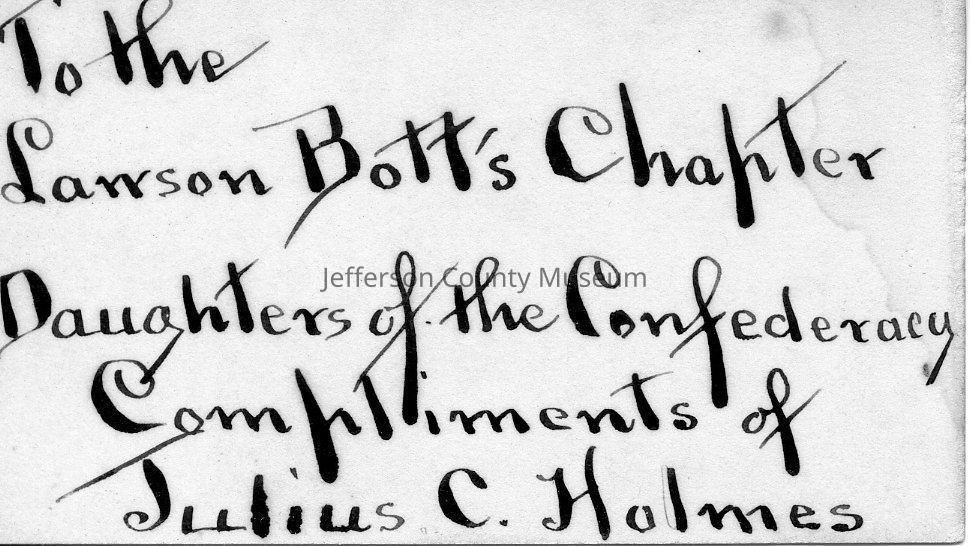 To the
Lawson Bott's Chapter
Jefferson County Museum
Daughters of the Confederacy
Compliments of
Julius C. Holmes